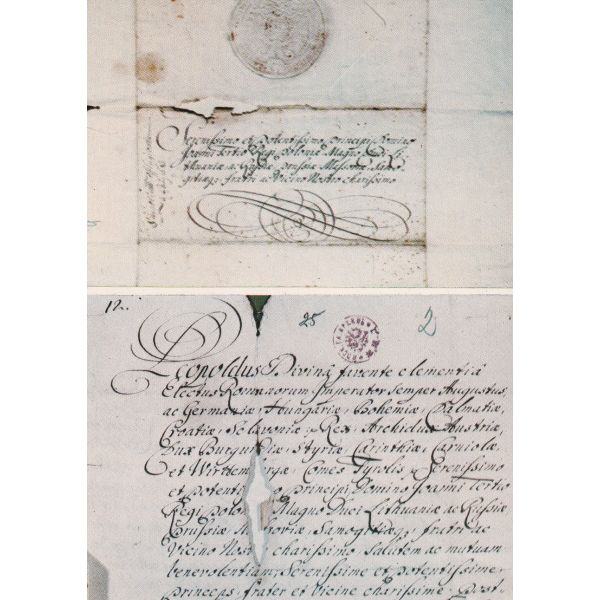 Serenissimo et potentissimo principi Domino
Joanni Tertio Regi Poloniæ Magno Duci Li-
thuaniæ ac Russiæ Prussiæ Massoviæ Samo-
gitiæqȝ fratri ac Vicino Nostro charissimo
12.
25
2
Leopoldus Divinâ favente clementiâ
Electus Romanorum Imperator Semper Augustus,
ac Germaniæ, Hungariæ, Bohemiæ, Dalmatiæ,
Croatiæ, Sclavoniæ Rex, Archidux Austriæ,
Dux Burgundiæ, Styriæ, Carinthiæ, Carniolæ
et Wirtembergæ, Comes Tyrolis, Serenissimo
et potentissimo principi Domino Joanni Tertio
Regi Poloniæ Magno Duci Lithuaniæ ac Russiæ
Prussiæ Massoviæ, Samogitiæqȝ, fratri ac
Vicino Nostro charissimo Salutem ac mutuam
benevolentiam, Serenissime et potentissime
Princeps, frater et Vicine charissime. Post-